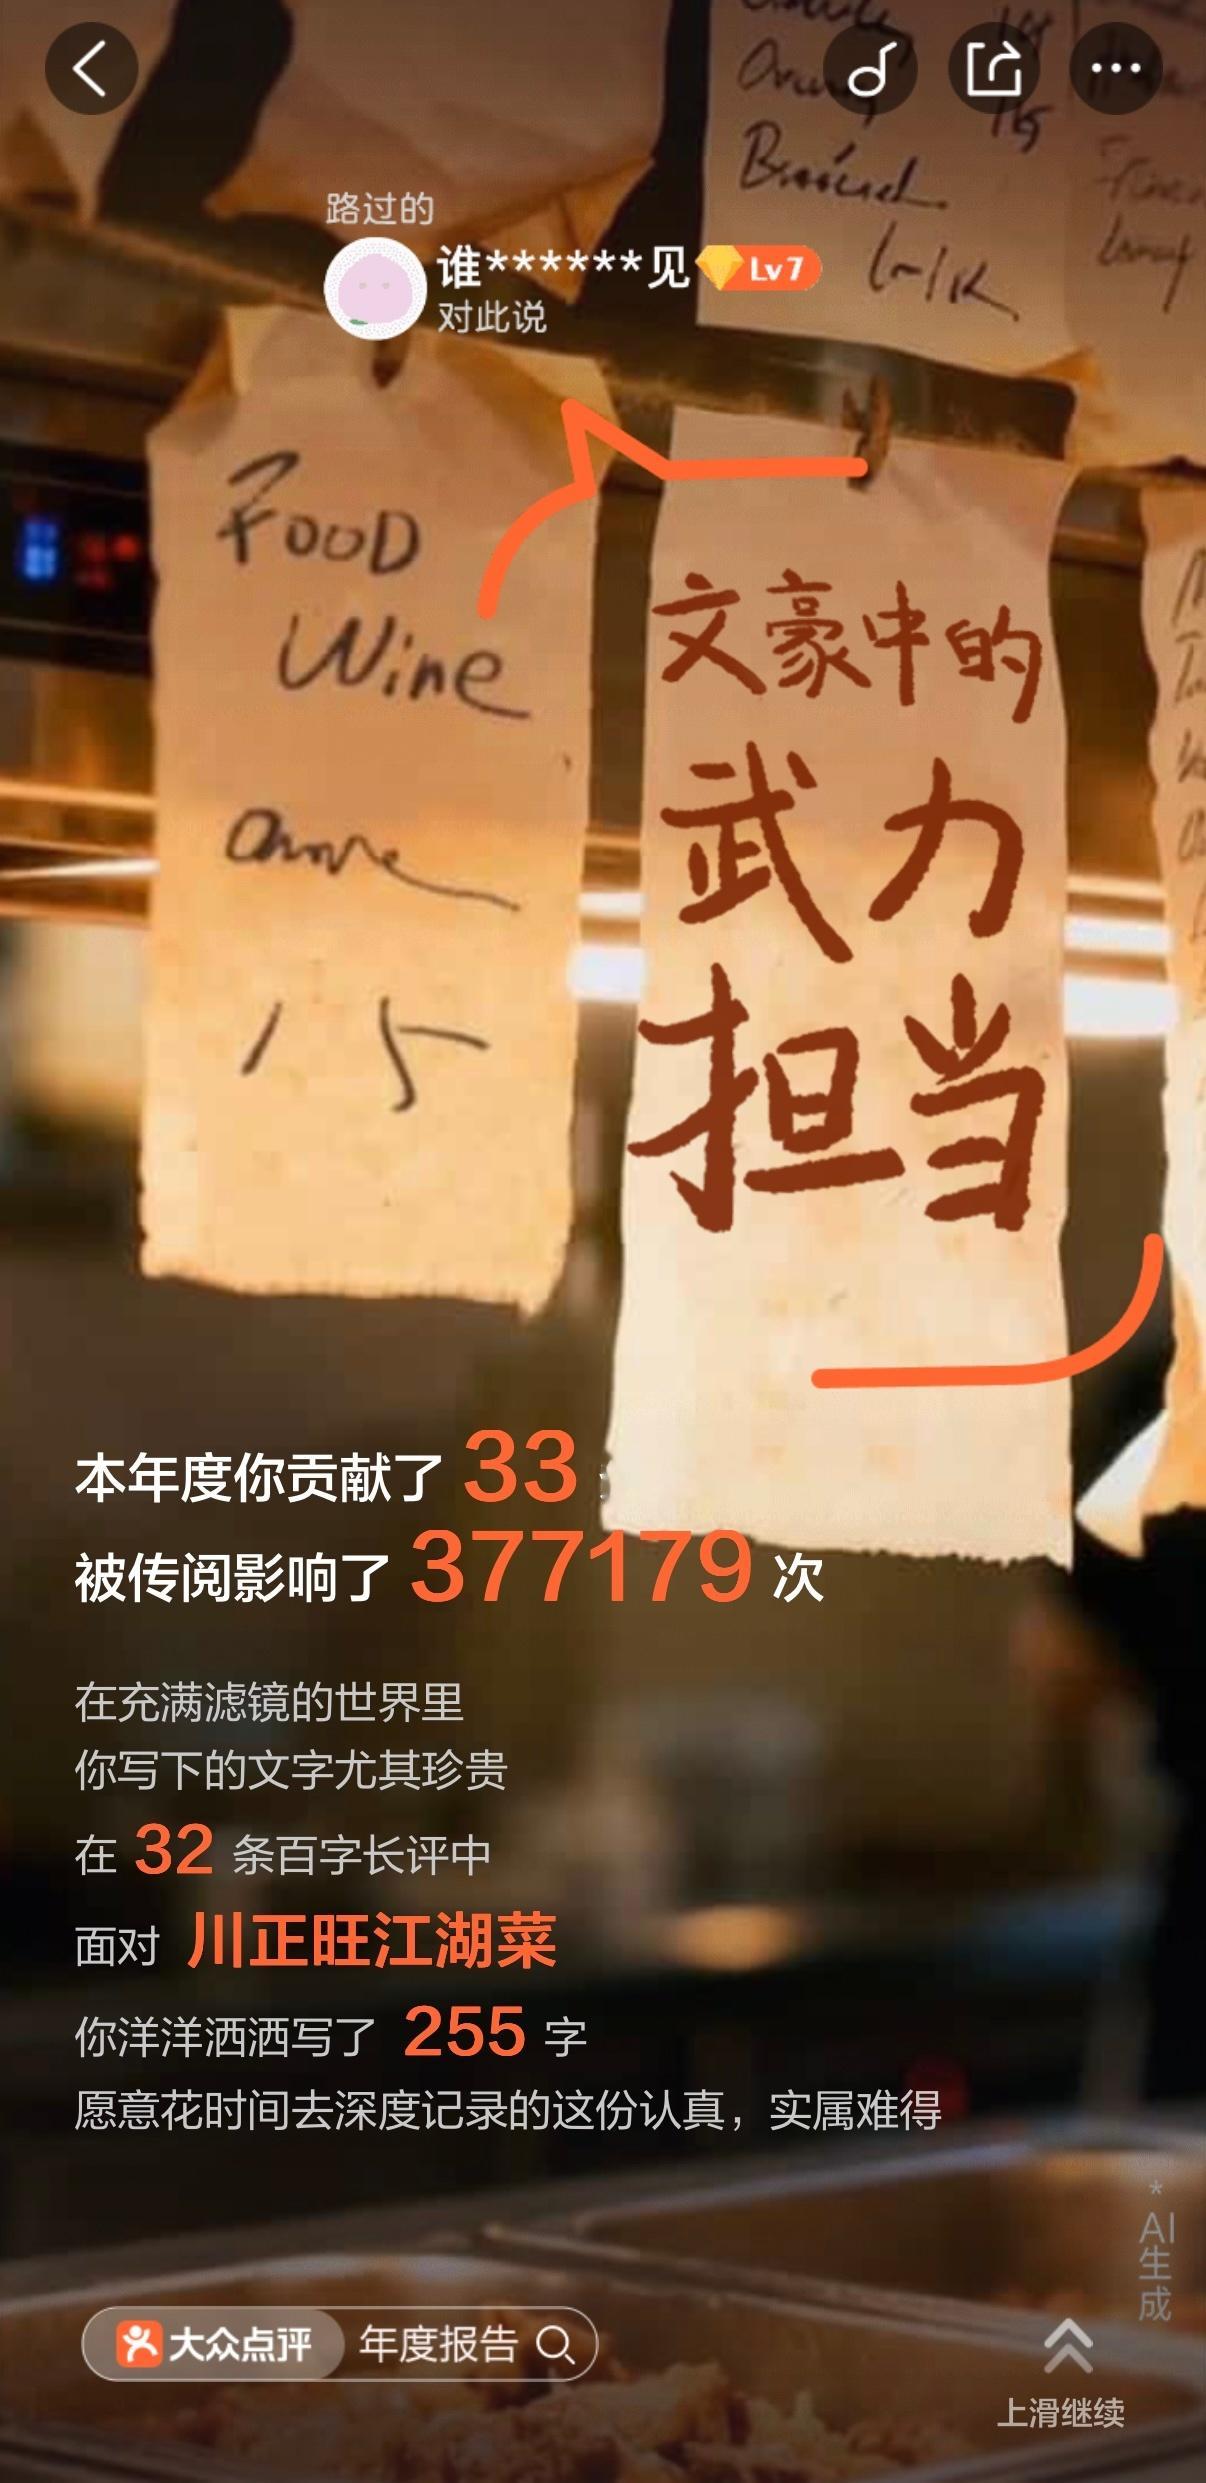 Broiled
路过的
谁******见 Lv7
对此说
FOOD
Wine
15
文豪中的
武力
担当
本年度你贡献了 33
被传阅影响了 377179 次
在充满滤镜的世界里
你写下的文字尤其珍贵
在 32 条百字长评中
面对 川正旺江湖菜
你洋洋洒洒写了 255 字
愿意花时间去深度记录的这份认真，实属难得
*AI生成
大众点评 年度报告
上滑继续